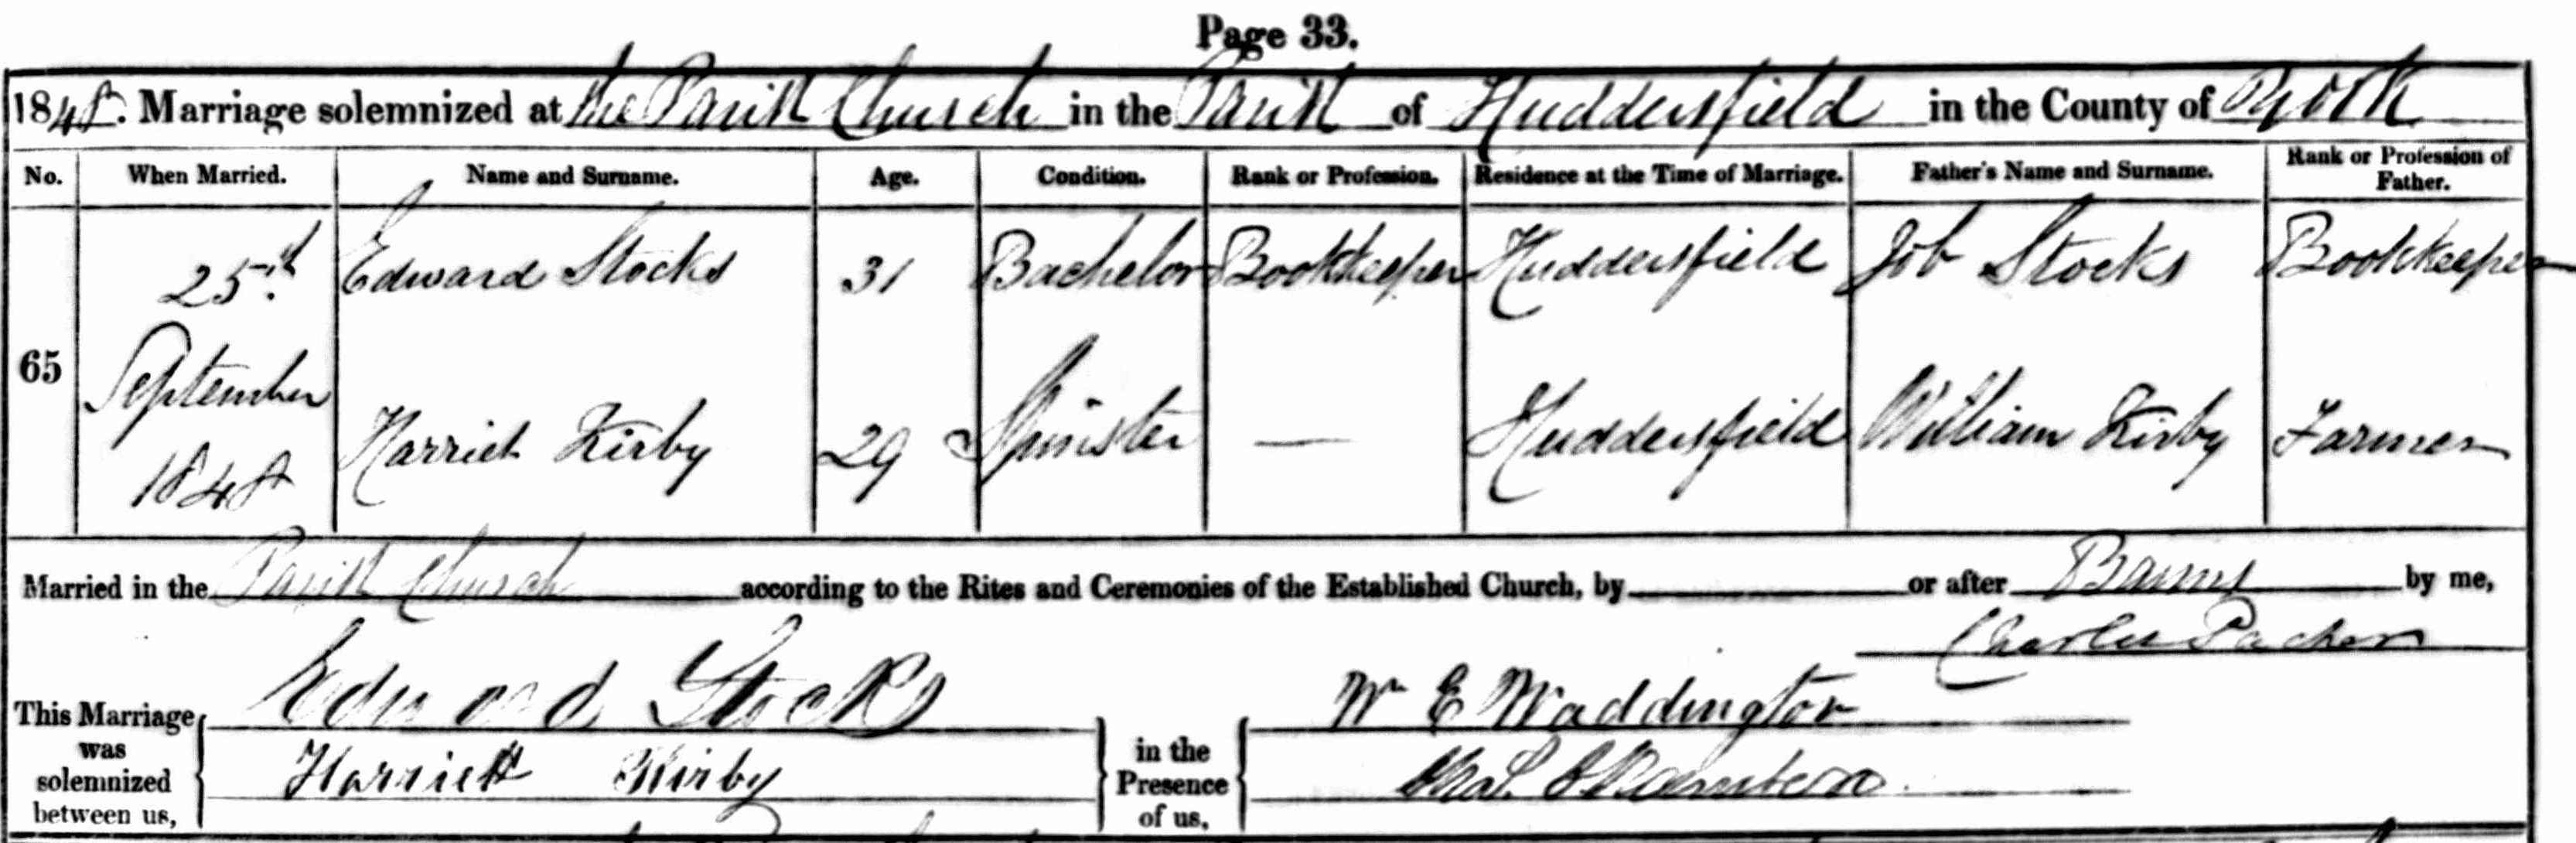 Page 33.
1848. Marriage solemnized at the Parish Church in the Parish of Huddersfield in the County of York
No. When Married. Name and Surname. Age. Condition. Rank or Profession. Residence at the Time of Marriage. Father's Name and Surname. Rank or Profession of Father.
65 25th September 1848
Edward Stocks 31 Bachelor Bookkeeper Huddersfield Job Stocks Bookkeeper
Harriet Kirby 29 Spinster — Huddersfield William Kirby Farmer
Married in the Parish Church according to the Rites and Ceremonies of the Established Church, by or after Banns by me,
Charles Packer
This Marriage was solemnized between us,
Edward Stocks
Harriett Kirby
in the Presence of us,
Wm E Waddington